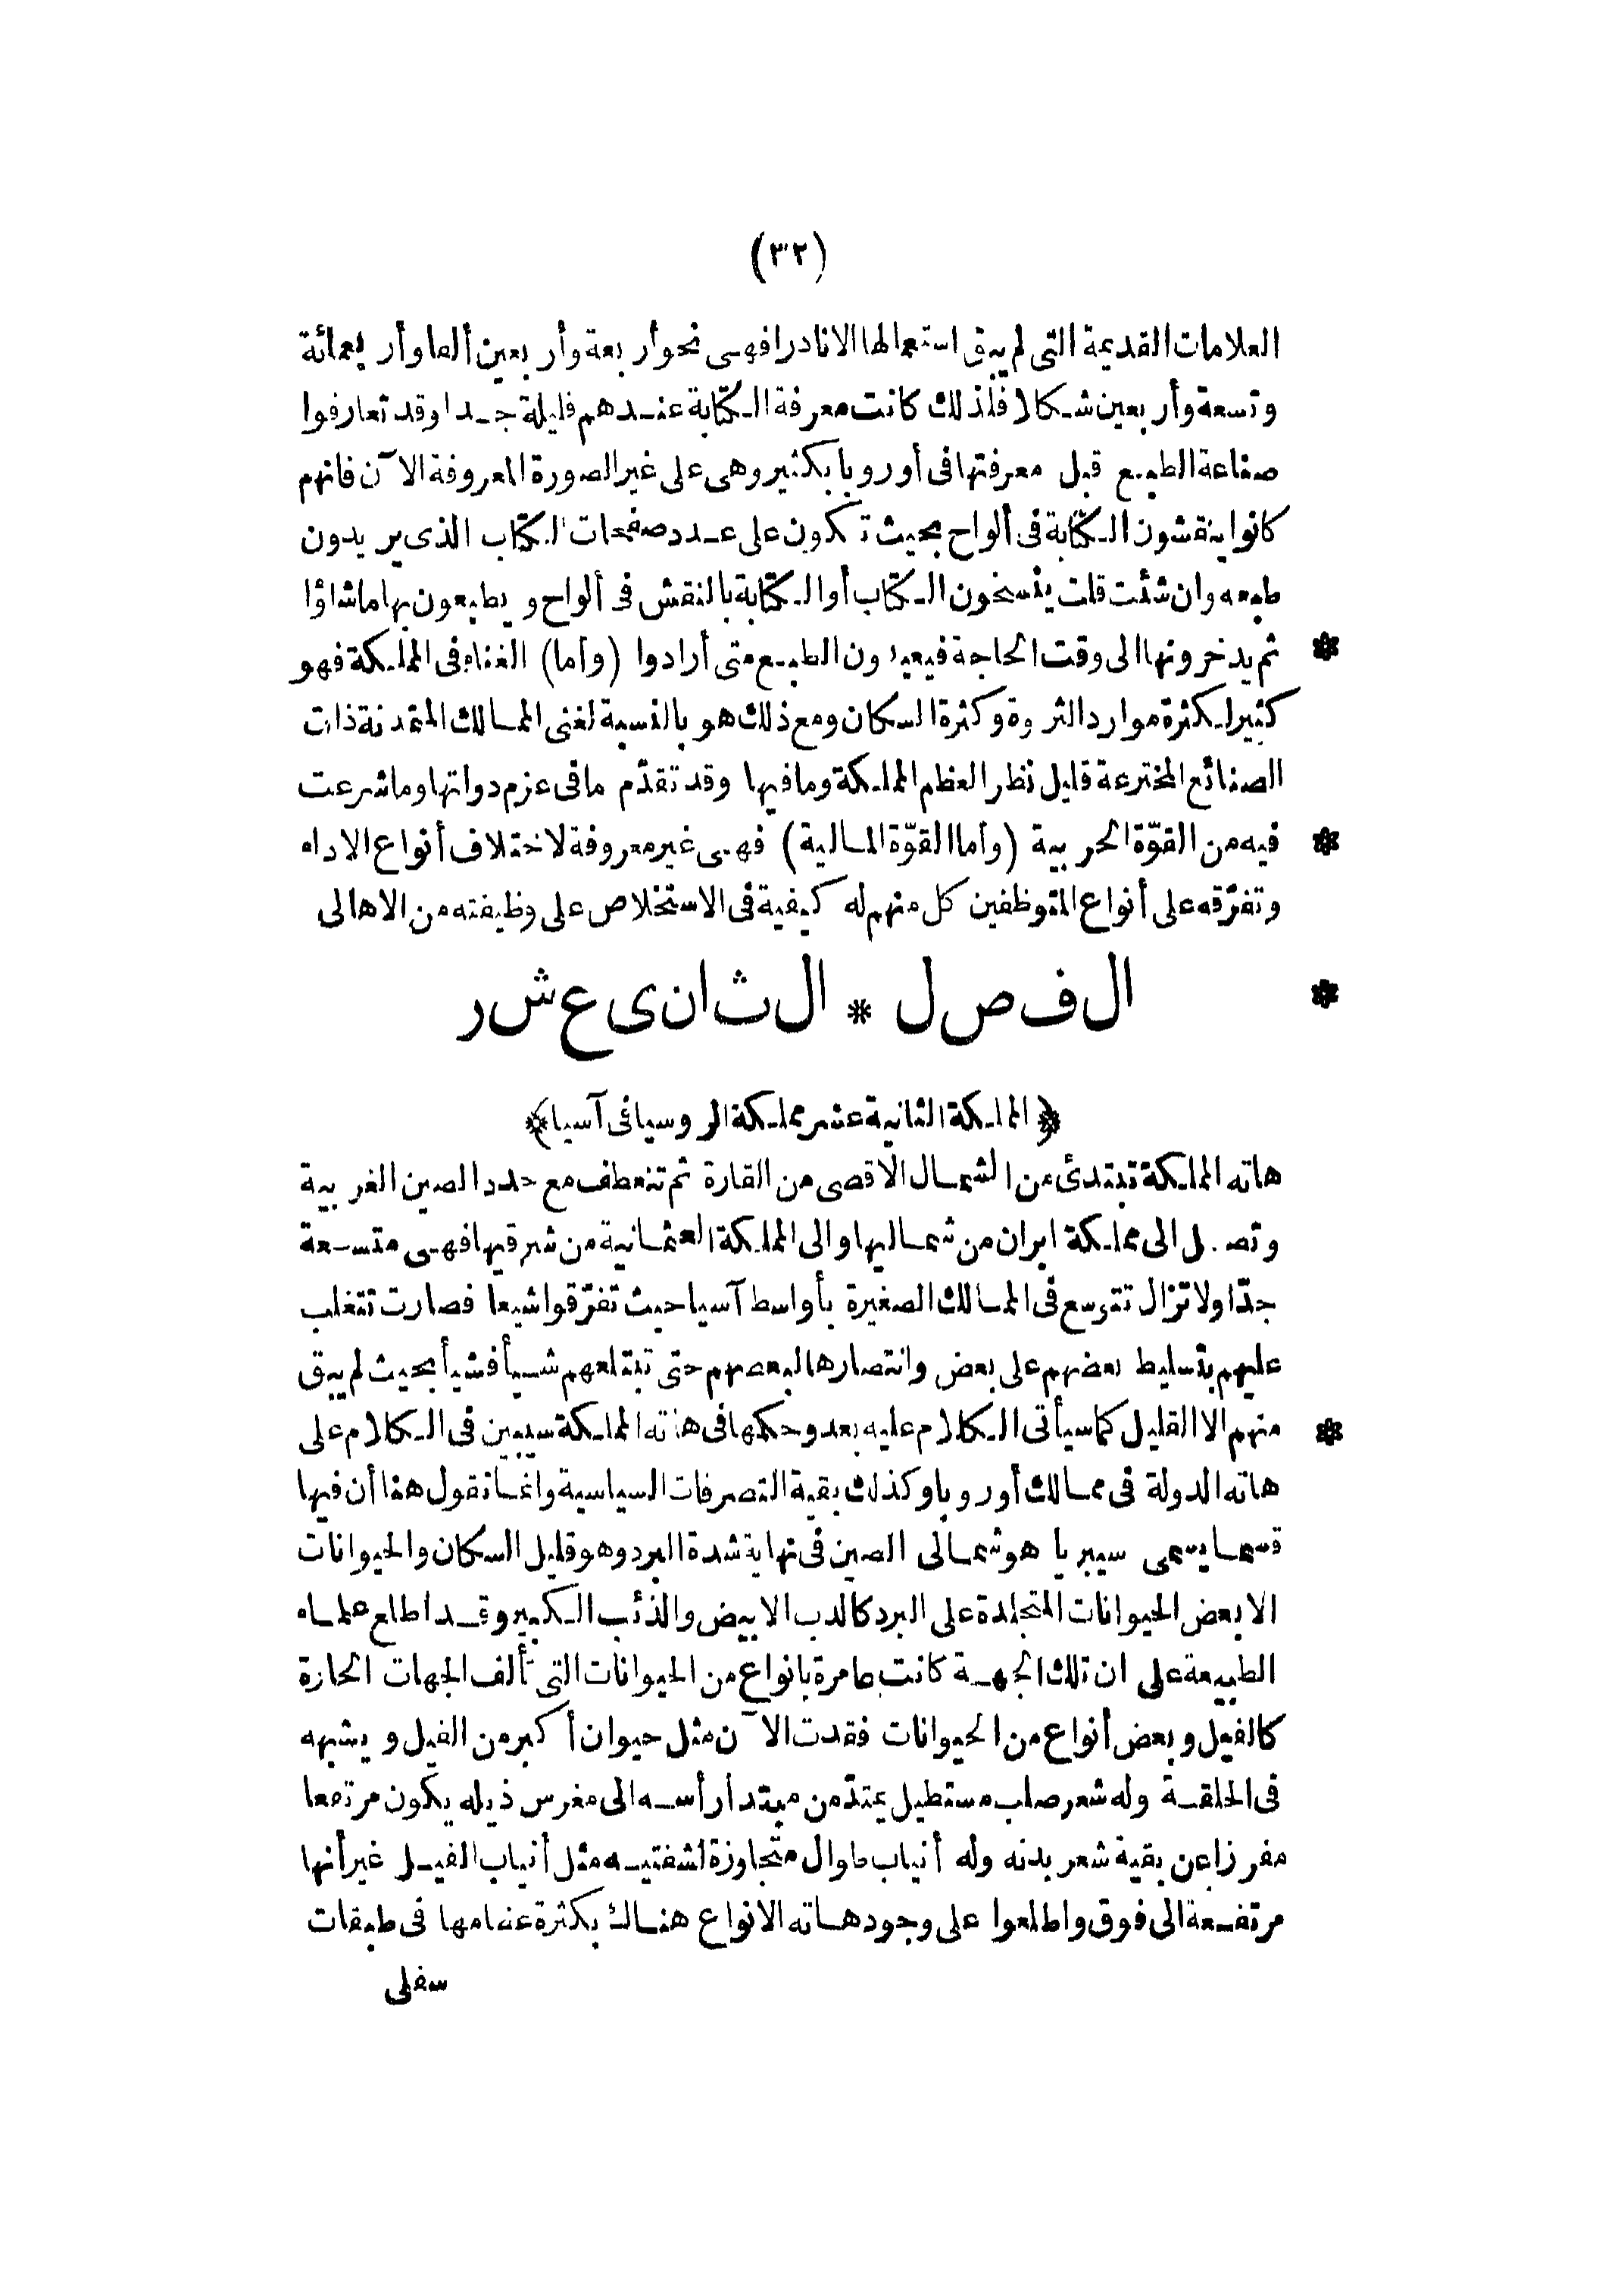 (٣٢)
العلامات القديمة التى لم يبق استعمالها الا نادرا فهى نحو أربعة وأربعين ألفا وأربعمائة
وتسعة وأربعين شكلا فلذلك كانت معرفة الكتابة عندهم قليلة جدا وقد تعارفوا
صناعة الطبع قبل معرفتها فى أوروبا بكثير وهى على غير الصورة المعروفة الآن فانهم
كانوا ينقشون الكتابة فى ألواح بحيث تكون على عدد صفحات الكتاب الذى يريدون
طبعه وان شئت قلت ينسخون الكتاب أو الكتابة بالنقش فى ألواح ويطبعون بها ما شاؤا
* ثم يدخرونها الى وقت الحاجة فيعيدون الطبع متى أرادوا (وأما) الغناء فى المملكة فهو
كثير لكثرة موارد الثروة وكثرة السكان ومع ذلك هو بالنسبة لغنى الممالك المتمدنة ذات
الصنائع المخترعة قليل نظر العظم المملكة وما فيها وقد تقدّم ما فى عزم دولتها وما شرعت
* فيه من القوّة الحربية (وأما القوّة المالية) فهى غير معروفة لاختلاف أنواع الاداء
وتفرّقه على أنواع المتوظفين كل منهم له كيفية فى الاستخلاص على وظيفته من الاهالى
* الفصل * الثانى عشر
﴿المملكة الثانية عشر مملكة الروسيا فى آسيا﴾
هاته المملكة تبتدئ من الشمال الاقصى من القارة ثم تنعطف مع حدد الصين الغربية
وتصل الى مملكة ايران من شماليها والى المملكة العثمانية من شرقيها فهى متسعة
جدّا ولا تزال تتوسع فى الممالك الصغيرة بأواسط آسيا حيث تفرّقوا شيعا فصارت تتغلب
عليهم بتسليط بعضهم على بعض وانتصارها لبعضهم حتى تبتلعهم شيأ فشيأ بحيث لم يبق
* منهم الا القليل كما سيأتى الكلام عليه بعد وحكمها فى هاته المملكة سيبين فى الكلام على
هاته الدولة فى ممالك أوروبا وكذلك بقية التصرفات السياسية وانما نقول هنا أن فيها
قسما يسمى سيبريا هو شمالى الصين فى نهاية شدة البرد وهو قليل السكان والحيوانات
الا بعض الحيوانات المتجلدة على البرد كالدب الابيض والذئب الكبير وقد اطلع علماء
الطبيعة على ان تلك الجهة كانت عامرة بانواع من الحيوانات التى تألف الجهات الحارة
كالفيل وبعض أنواع من الحيوانات فقدت الآن مثل حيوان أكبر من الفيل ويشبهه
فى الخلقة وله شعر صلب مستطيل يمتدّ من مبتدأ رأسه الى مغرس ذيله يكون مرتفعا
مفرزا عن بقية شعر بدنه وله أنياب طوال متجاوزة لشفتيه مثل أنياب الفيل غير أنها
مرتفعة الى فوق واطلعوا على وجود هاته الانواع هناك بكثرة عظامها فى طبقات
سفلى